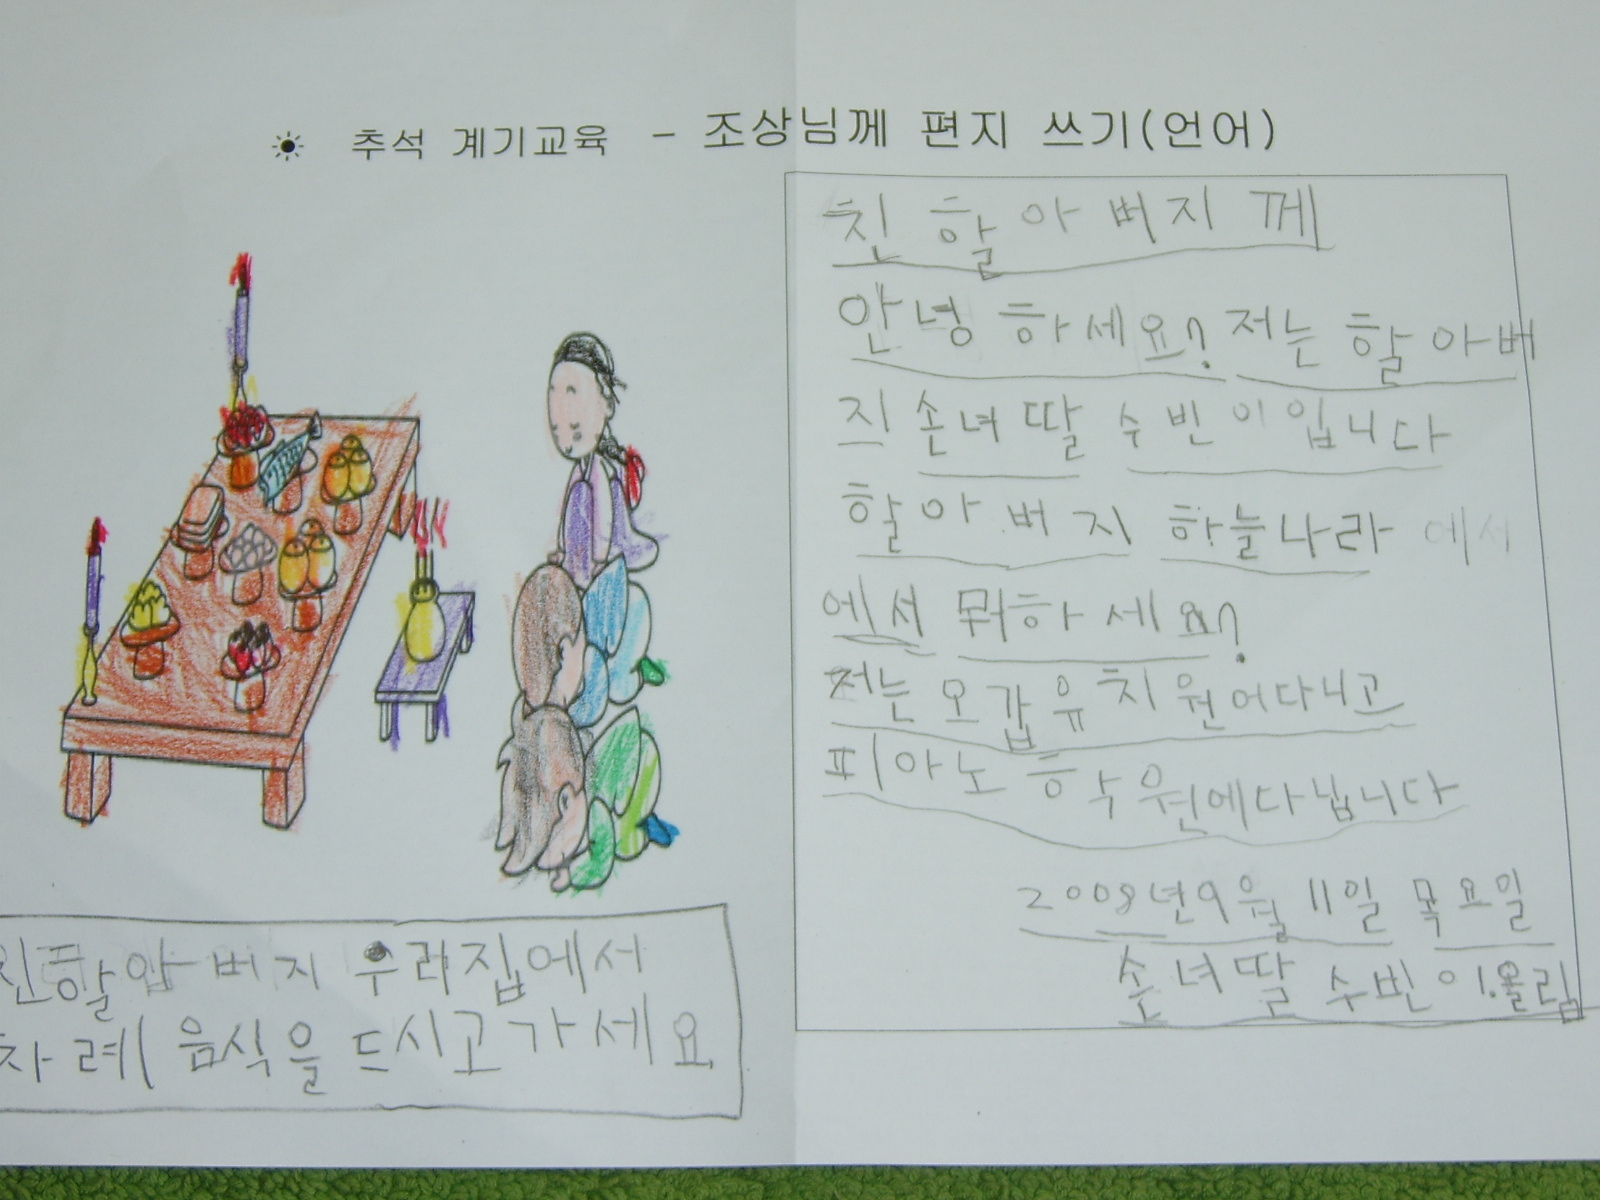 추석 계기교육 - 조상님께 편지 쓰기(언어)
친할아버지께
안녕하세요? 저는 할아버
지 손녀딸 수빈이입니다
할아버지 하늘나라 에서
에서 뭐하세요?
저는 오갑유치원어다니고
피아노 학원에다닙니다
2008년9월 11일 목요일
손녀딸 수빈이.올림
친할압버지 우리집에서
차례 음식을 드시고가세요